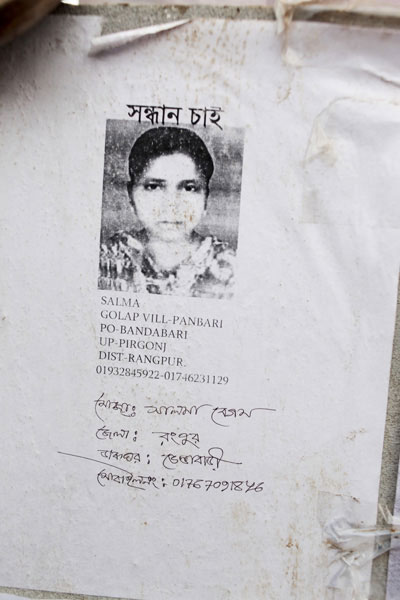 সন্ধান চাই
SALMA
GOLAP VILL-PANBARI
PO-BANDABARI
UP-PIRGONJ
DIST-RANGPUR.
01932845922-01746231129
মোছাঃ সালমা বেগম
জেলা: রংপুর
ডাকঘর: ভেন্ডাবাড়ী
মোবাইল নং: 01767091846